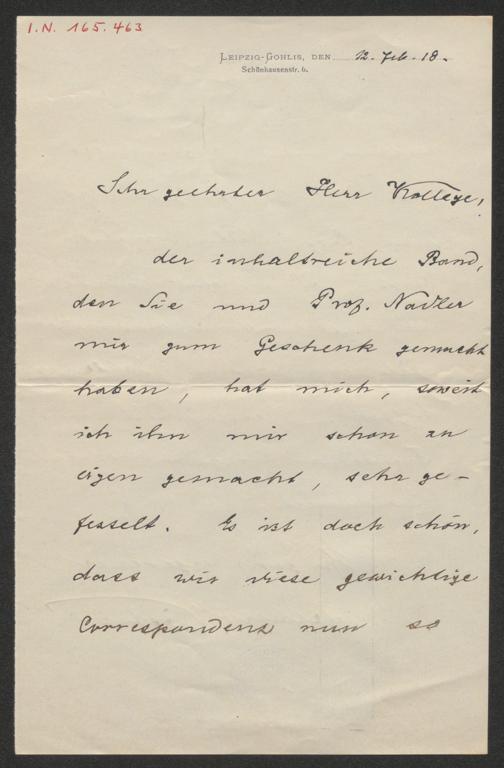 I.N. 165.463
LEIPZIG-GOHLIS, DEN 12. Feb. 18.
Schönhausenstr. 6.
Sehr geehrter Herr Kollege,
der inhaltreiche Band,
den Sie und Prof. Nadler
mir zum Geschenk gemacht
haben, hat mich, soweit
ich ihn mir schon zu
eigen gemacht, sehr ge-
fesselt. Es ist doch schön,
dass wir diese gewichtige
Correspondenz nun so